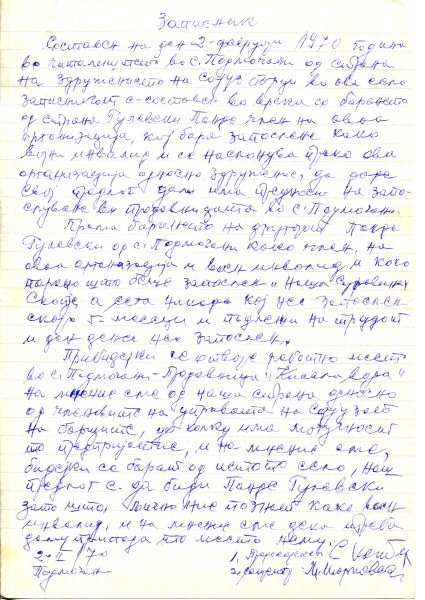 Записник
Составен на ден 2-февруари 1970 година
во читалиштето во с. Подмочани од страна
на здружението на Сојуз борци во ова село
записникот е составен во врска со барањето
од страна Гулевски Панде член на оваа
организација, кој бара запослене како
воен инвалид и се наслонува преко ова
организација односно здружение, да даде
свој предлог дали има предност на запо-
слуване во продавницата во с. Подмочани.
Према барането на другарот Панде
Гулевски од с. Подмочани како член на
оваа организација и воен инвалид и како
порано што беше запослен и Наша Суровина
а сега никаде кој не е запослен
скоро 5-месеци и подлежи на трудот
и ден денес не е запослен.
се отвора работно место
во с. Подмочани-Продавница "Кисела Вода"
на мнение сме од наша страна односно
од членовите на управата на Сојузот
на борците, до колку има можност
то претпријатие, и на мнение сме,
бидејќи се бараат од истото село, наш
предлог е да биди Панде Гулевски
зато што, лично ние познаен како воен
инвалид, и на мнение сме дека треба
да му припада то место нему.
2-II-70
Подмочани
1. Председател С.
2. секретар М.